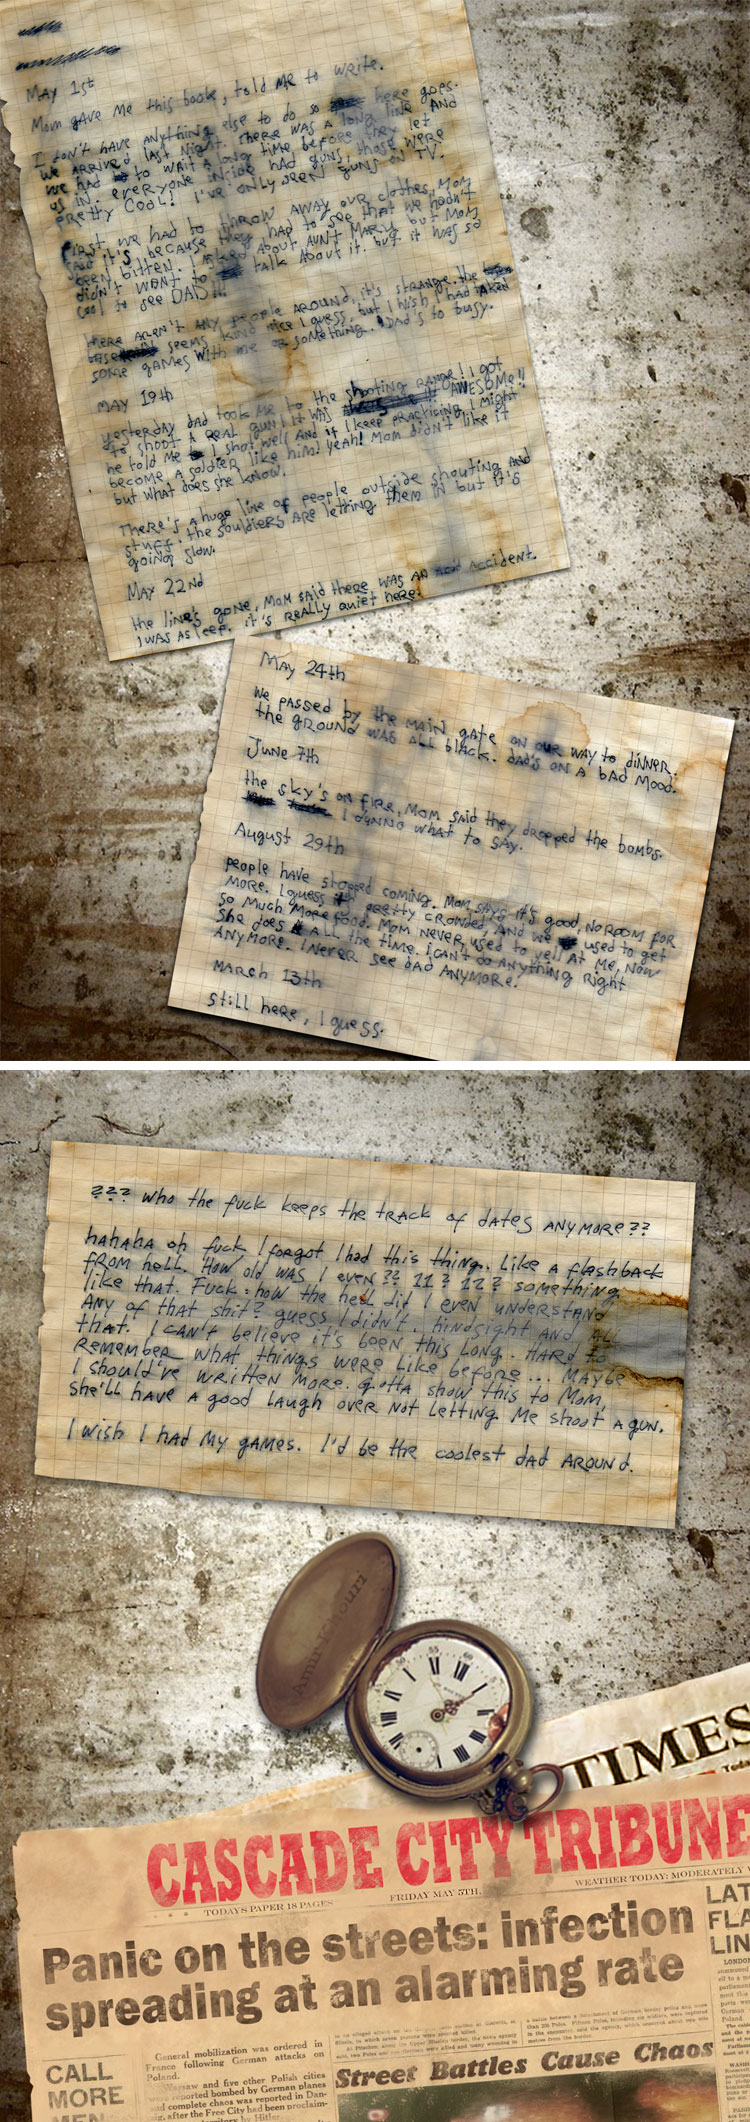 May 1st
Mom gave me this book, told me to write.
I don't have anything else to do so here goes.
we arrived last night. There was a long line and
we had to wait a long time before they let
us in. everyone inside had guns, those were
pretty cool! I've only seen guns on TV.
First we had to throw away our clothes, Mom
said it's because they had to see that we hadn't
been bitten. I asked about Aunt Mary but Mom
didn't want to talk about it. but it was so
cool to see DAD!!!
there aren't any people around, it's strange. the
base seems kind nice I guess, but I wish I had taken
some games with me or something. Dad's to busy.
May 19th
yesterday dad took me to the shooting range! I got
to shoot a real gun! it was AWESOME!!
he told me I shot well and if I keep practicing I might
become a soldier like him! yeah! Mom didn't like it
but what does she know.
There's a huge line of people outside shouting and
stuff. the souldiers are letting them in but it's
going slow.
May 22nd
the line's gone, Mom said there was an accident.
I was asleep. it's really quiet here.
May 24th
we passed by the main gate on our way to dinner.
the ground was all black. dad's on a bad mood.
June 7th
the sky's on fire, Mom said they dropped the bombs.
I dunno what to say.
August 29th
people have stopped coming. Mom says it's good, no room for
more. I guess pretty crowded, and we used to get
so much more food. Mom never used to yell at me, now
she does all the time. i can't do anything right
anymore. I never see dad anymore.
March 13th
still here, I guess.
??? who the fuck keeps the track of dates anymore??
hahaha oh fuck I forgot I had this thing. Like a flashback
from hell. How old was I even?? 11? 12? something
like that. Fuck. how the hell did I even understand
any of that shit? guess I didn't. hindsight and all
that. I can't believe it's been this long. Hard to
remember what things were like before... Maybe
I should've written more. gotta show this to Mom,
she'll have a good laugh over not letting me shoot a gun.
I wish I had my games. I'd be the coolest dad around.
Amir Khouri
TIMES
CASCADE CITY TRIBUNE
TODAYS PAPER 18 PAGES
FRIDAY MAY 5TH.
WEATHER TODAY: MODERATELY
Panic on the streets: infection
spreading at an alarming rate
LAT
FLA
LIN
LONDON
CALL
MORE
MEN
General mobilization was ordered in
France following German attacks on
Poland.
Warsaw and five other Polish cities
were reported bombed by German planes
and complete chaos was reported in Dan-
zig, after the Free City had been proclaim-
territory by Hitler.
Street Battles Cause Chaos